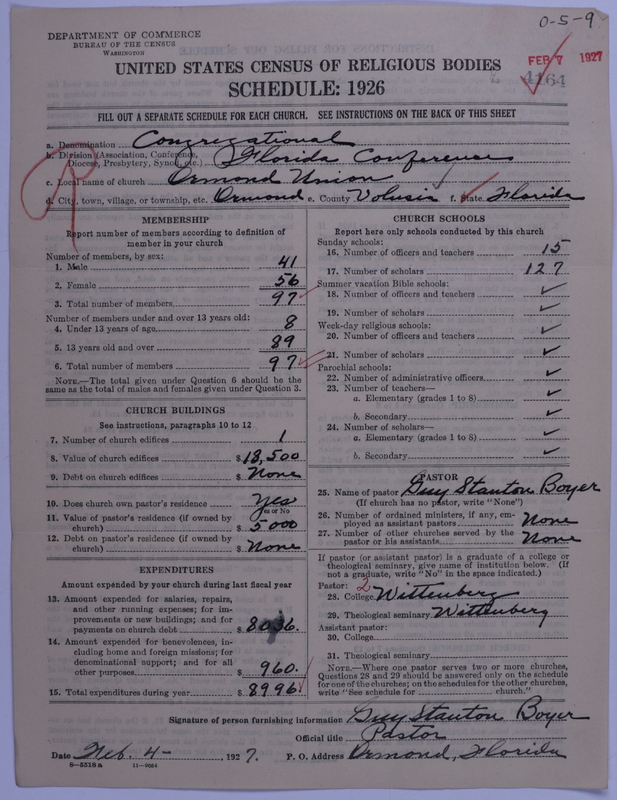 0-5-9
DEPARTMENT OF COMMERCE
BUREAU OF THE CENSUS
WASHINGTON
FEB 7 1927
4164
UNITED STATES CENSUS OF RELIGIOUS BODIES
SCHEDULE: 1926
FILL OUT A SEPARATE SCHEDULE FOR EACH CHURCH. SEE INSTRUCTIONS ON THE BACK OF THIS SHEET
a. Denomination Congregational
b. Division (Association, Conference, Diocese, Presbytery, Synod, etc.) Florida Conference
c. Local name of church Ormond Union
d. City, town, village, or township, etc. Ormond e. County Volusia f. State Florida
MEMBERSHIP
Report number of members according to definition of
member in your church
Number of members, by sex:
1. Male 41
2. Female 56
3. Total number of members 97
Number of members under and over 13 years old:
4. Under 13 years of age 8
5. 13 years old and over 89
6. Total number of members 97
NOTE.—The total given under Question 6 should be the
same as the total of males and females given under Question 3.
CHURCH BUILDINGS
See instructions, paragraphs 10 to 12
7. Number of church edifices 1
8. Value of church edifices $18,500
9. Debt on church edifices $ None
10. Does church own pastor's residence Yes
Yes or No
11. Value of pastor's residence (if owned by
church) $ 5000
12. Debt on pastor's residence (if owned by
church) $ None
EXPENDITURES
Amount expended by your church during last fiscal year
13. Amount expended for salaries, repairs,
and other running expenses; for im-
provements or new buildings; and for
payments on church debt $ 8036.
14. Amount expended for benevolences, in-
cluding home and foreign missions; for
denominational support; and for all
other purposes $ 960.
15. Total expenditures during year $ 8996
CHURCH SCHOOLS
Report here only schools conducted by this church
Sunday schools:
16. Number of officers and teachers 15
17. Number of scholars 127
Summer vacation Bible schools:
18. Number of officers and teachers ✓
19. Number of scholars ✓
Week-day religious schools:
20. Number of officers and teachers ✓
21. Number of scholars ✓
Parochial schools:
22. Number of administrative officers ✓
23. Number of teachers—
a. Elementary (grades 1 to 8) ✓
b. Secondary ✓
24. Number of scholars—
a. Elementary (grades 1 to 8) ✓
b. Secondary ✓
PASTOR
25. Name of pastor Guy Stanton Boyer
(If church has no pastor, write "None")
26. Number of ordained ministers, if any, em-
ployed as assistant pastors None
27. Number of other churches served by the
pastor or his assistants None
If pastor (or assistant pastor) is a graduate of a college or
theological seminary, give name of institution below. (If
not a graduate, write "No" in the space indicated.)
Pastor: 2
28. College Wittenberg
29. Theological seminary Wittenberg
Assistant pastor:
30. College
31. Theological seminary
NOTE.—Where one pastor serves two or more churches,
Questions 28 and 29 should be answered only on the schedule
for one of the churches; on the schedules for the other churches,
write "See schedule for church."
Signature of person furnishing information Guy Stanton Boyer
Official title Pastor
Date Feb. 4-, 1927. P. O. Address Ormond, Florida
8-5318 a 11-9054